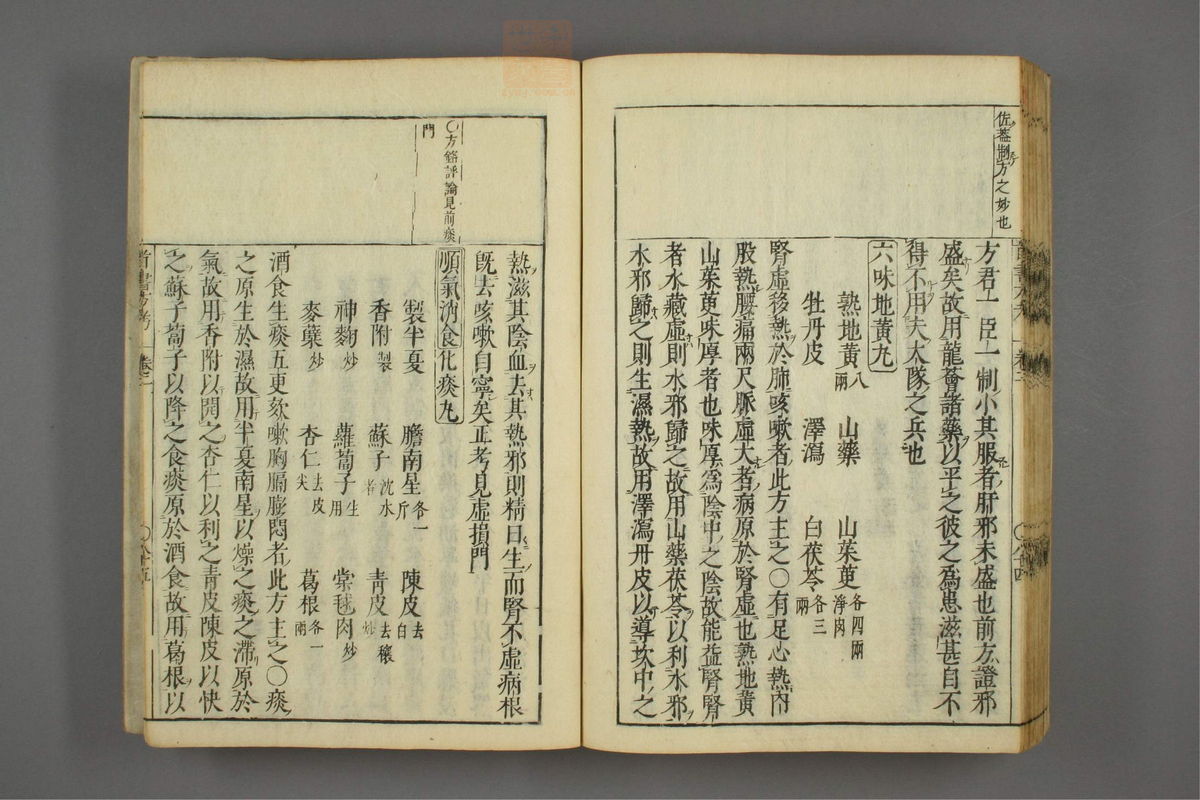 佐葢制方之妙也
方君一臣一制小其服者肝邪未盛也前方證邪
盛矣故用龍薈諸藥以平之彼之爲患滋甚自不
得不用夫大隊之兵也
六味地黃丸
熟地黃八兩 山藥 山茱萸各四兩淨肉
牡丹皮 澤瀉 白茯苓各三兩
腎虛移熱於肺咳嗽者此方主之○有足心熱內
股熱腰痛兩尺脈虛大者病原於腎虛也熟地黃
山茱萸味厚者也味厚爲陰中之陰故能益腎腎
者水藏虛則水邪歸之故用山藥茯苓以利水邪
水邪歸之則生濕熱故用澤瀉丹皮以導坎中之
○方藥評論見前痰
門
熱滋其陰血去其熱邪則精日生而腎不虛病根
旣去咳嗽自寧矣正考見虛損門
順氣消食化痰丸
製半夏 膽南星各一斤 陳皮去白
香附製 蘇子沈水者 青皮去穰炒
神麴炒 蘿蔔子生用 棠毬肉炒
麥蘗炒 杏仁去皮尖 葛根各一兩
酒食生痰五更欬嗽胸膈膨悶者此方主之○痰
之原生於濕故用半夏南星以燥之痰之滯原於
氣故用香附以開之杏仁以利之青皮陳皮以快
之蘇子蔔子以降之食痰原於酒食故用葛根以